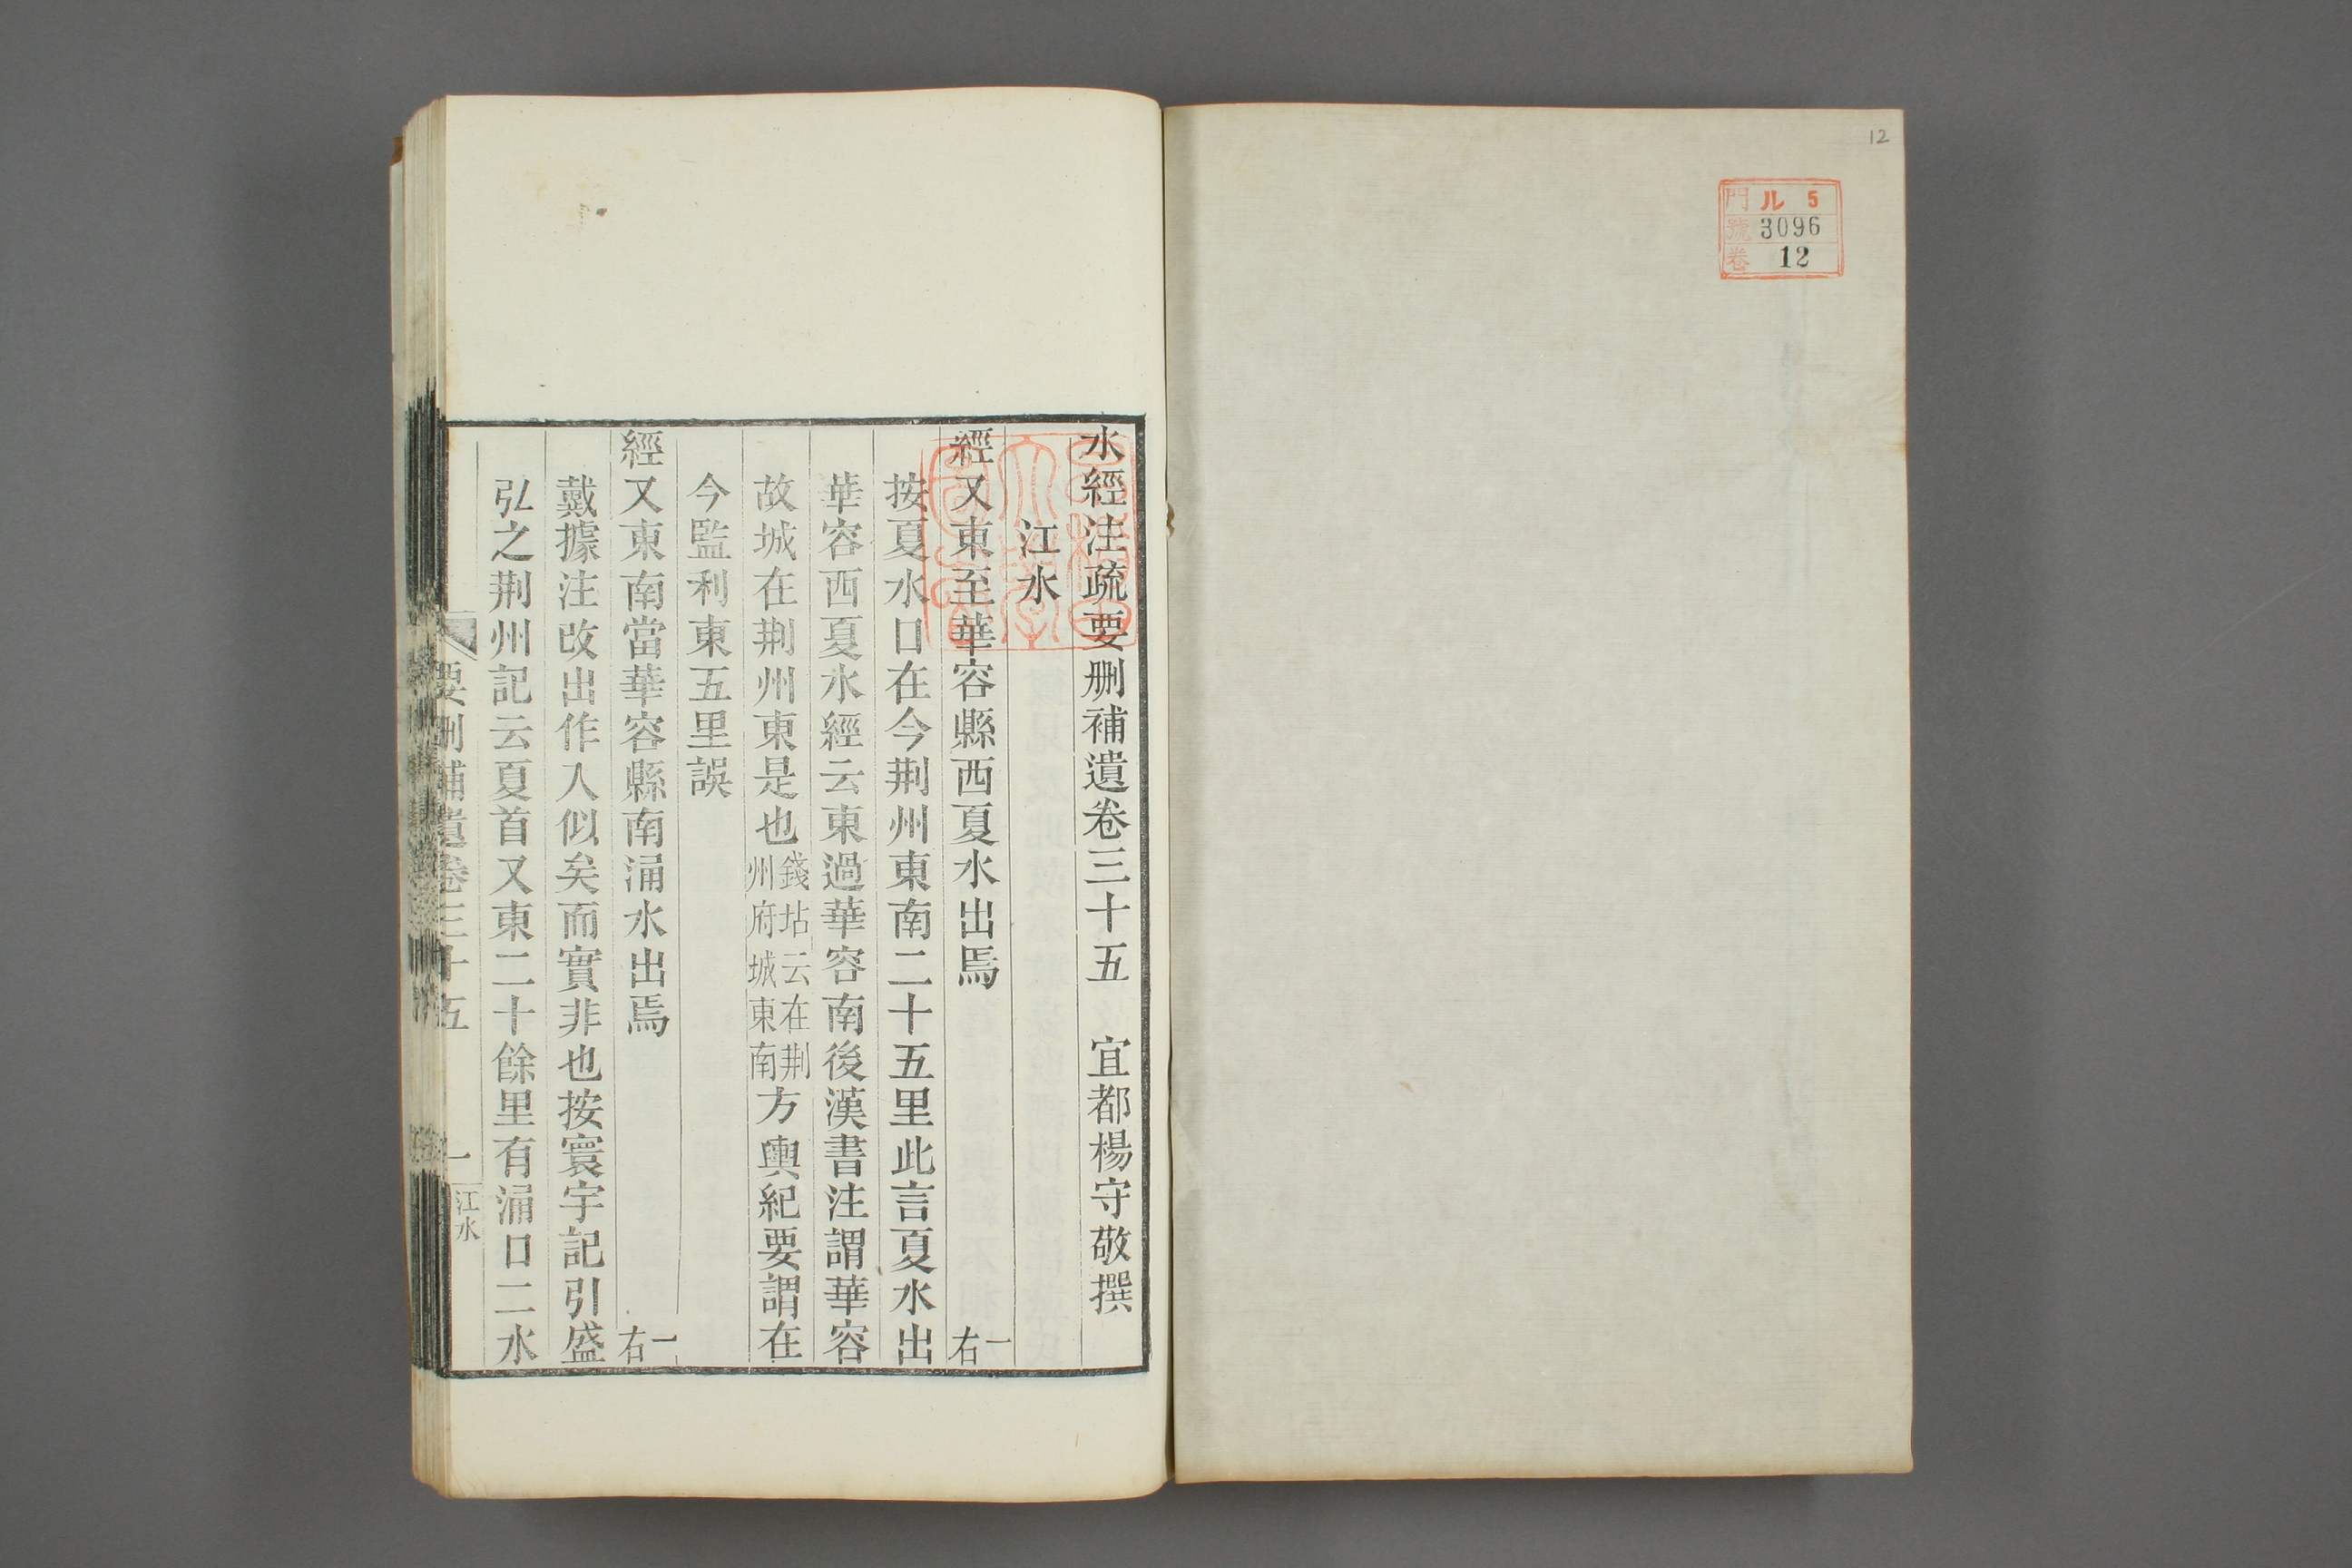 12
門 ル 5
號 3096
卷 12
水經注疏要删補遺卷三十五 宜都楊守敬撰
江水
經又東至華容縣西夏水出焉 一右
按夏水口在今荆州東南二十五里此言夏水出
華容西夏水經云東過華容南後漢書注謂華容
故城在荆州東是也錢坫云在荆州府城東南方輿紀要謂在
今監利東五里誤
經又東南當華容縣南涌水出焉 一右
戴據注改出作入似矣而實非也按寰宇記引盛
弘之荆州記云夏首又東二十餘里有涌口二水
要删補遺卷三十五 一 江水